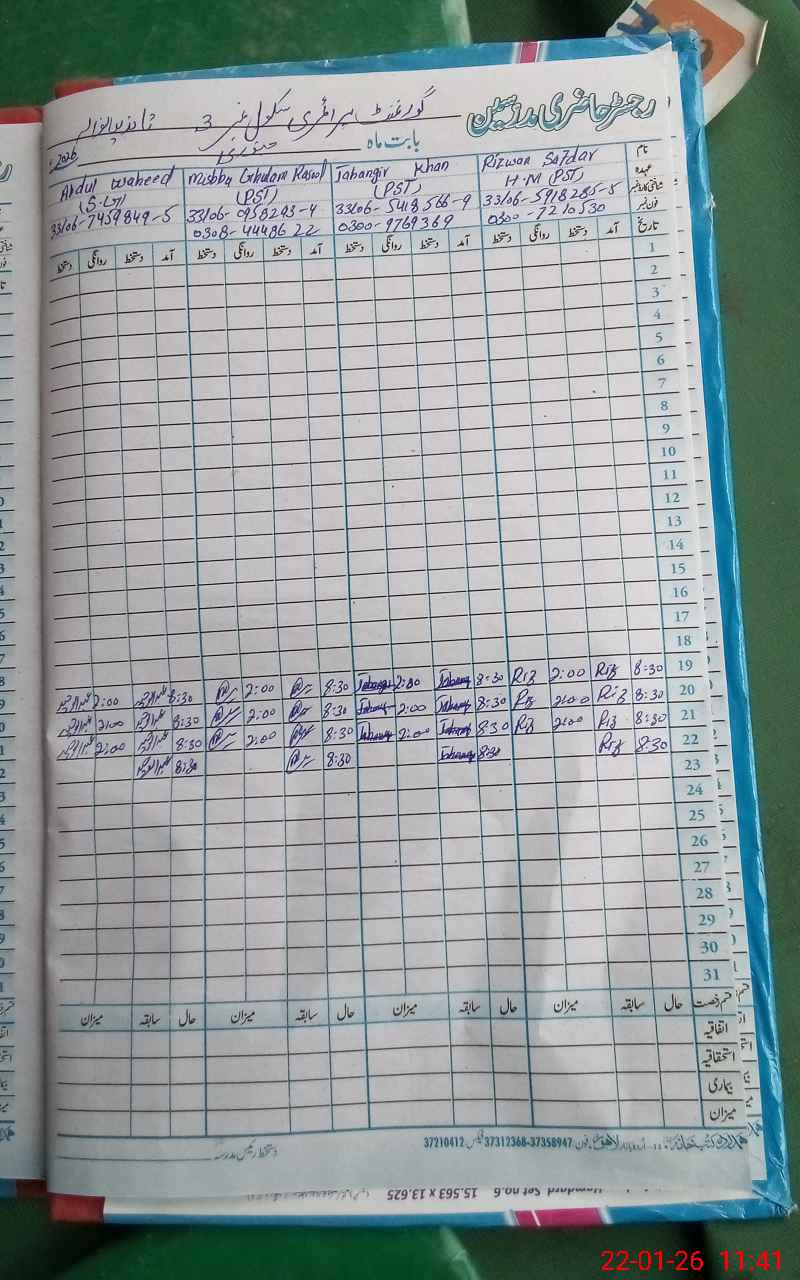 رجسٹر حاضری مدرسین گورنمنٹ پرائمری سکول نمبر 3
بابت ماہ جنوری 2026
نام Rizwan Safdar Jahangir Khan Misbby Ghulam Rasool Abdul Waheed
عہدہ H.M (PST) (PST) (PST)
شناختی کارڈ نمبر 33106-5918285-5 33106-5418566-9 33106-0958293-4 33106-7459849-5
فون نمبر 0300-7210530 0300-9769369 0308-4448622
تاریخ آمد دستخط روانگی دستخط آمد دستخط روانگی دستخط آمد دستخط روانگی دستخط آمد دستخط روانگی دستخط
1
2
3
4
5
6
7
8
9
10
11
12
13
14
15
16
17
18
19 8:30 Riz 2:00 Riz 8:30 Jahangir 2:00 Jahangir 8:30 2:00 8:30 2:00
20 8:30 Riz 2:00 Riz 8:30 Jahangir 2:00 Jahangir 8:30 2:00 8:30 2:00
21 8:30 Riz 2:00 Riz 8:30 Jahangir 2:00 Jahangir 8:30 2:00 8:30 2:00
22 8:30 Riz 8:30 Jahangir 8:30 8:30
23
24
25
26
27
28
29
30
31
قسم رخصت حال سابقہ میزان حال سابقہ میزان حال سابقہ میزان حال سابقہ میزان
اتفاقیہ
استحقاقیہ
بیماری
میزان
ہمدرد کتب خانہ اردو بازار لاہور فون: 37312368-37358947 فیکس: 37210412
دستخط رئیس مدرسہ
Hamdard Set no.6 15.563 x 13.625
22-01-26 11:41